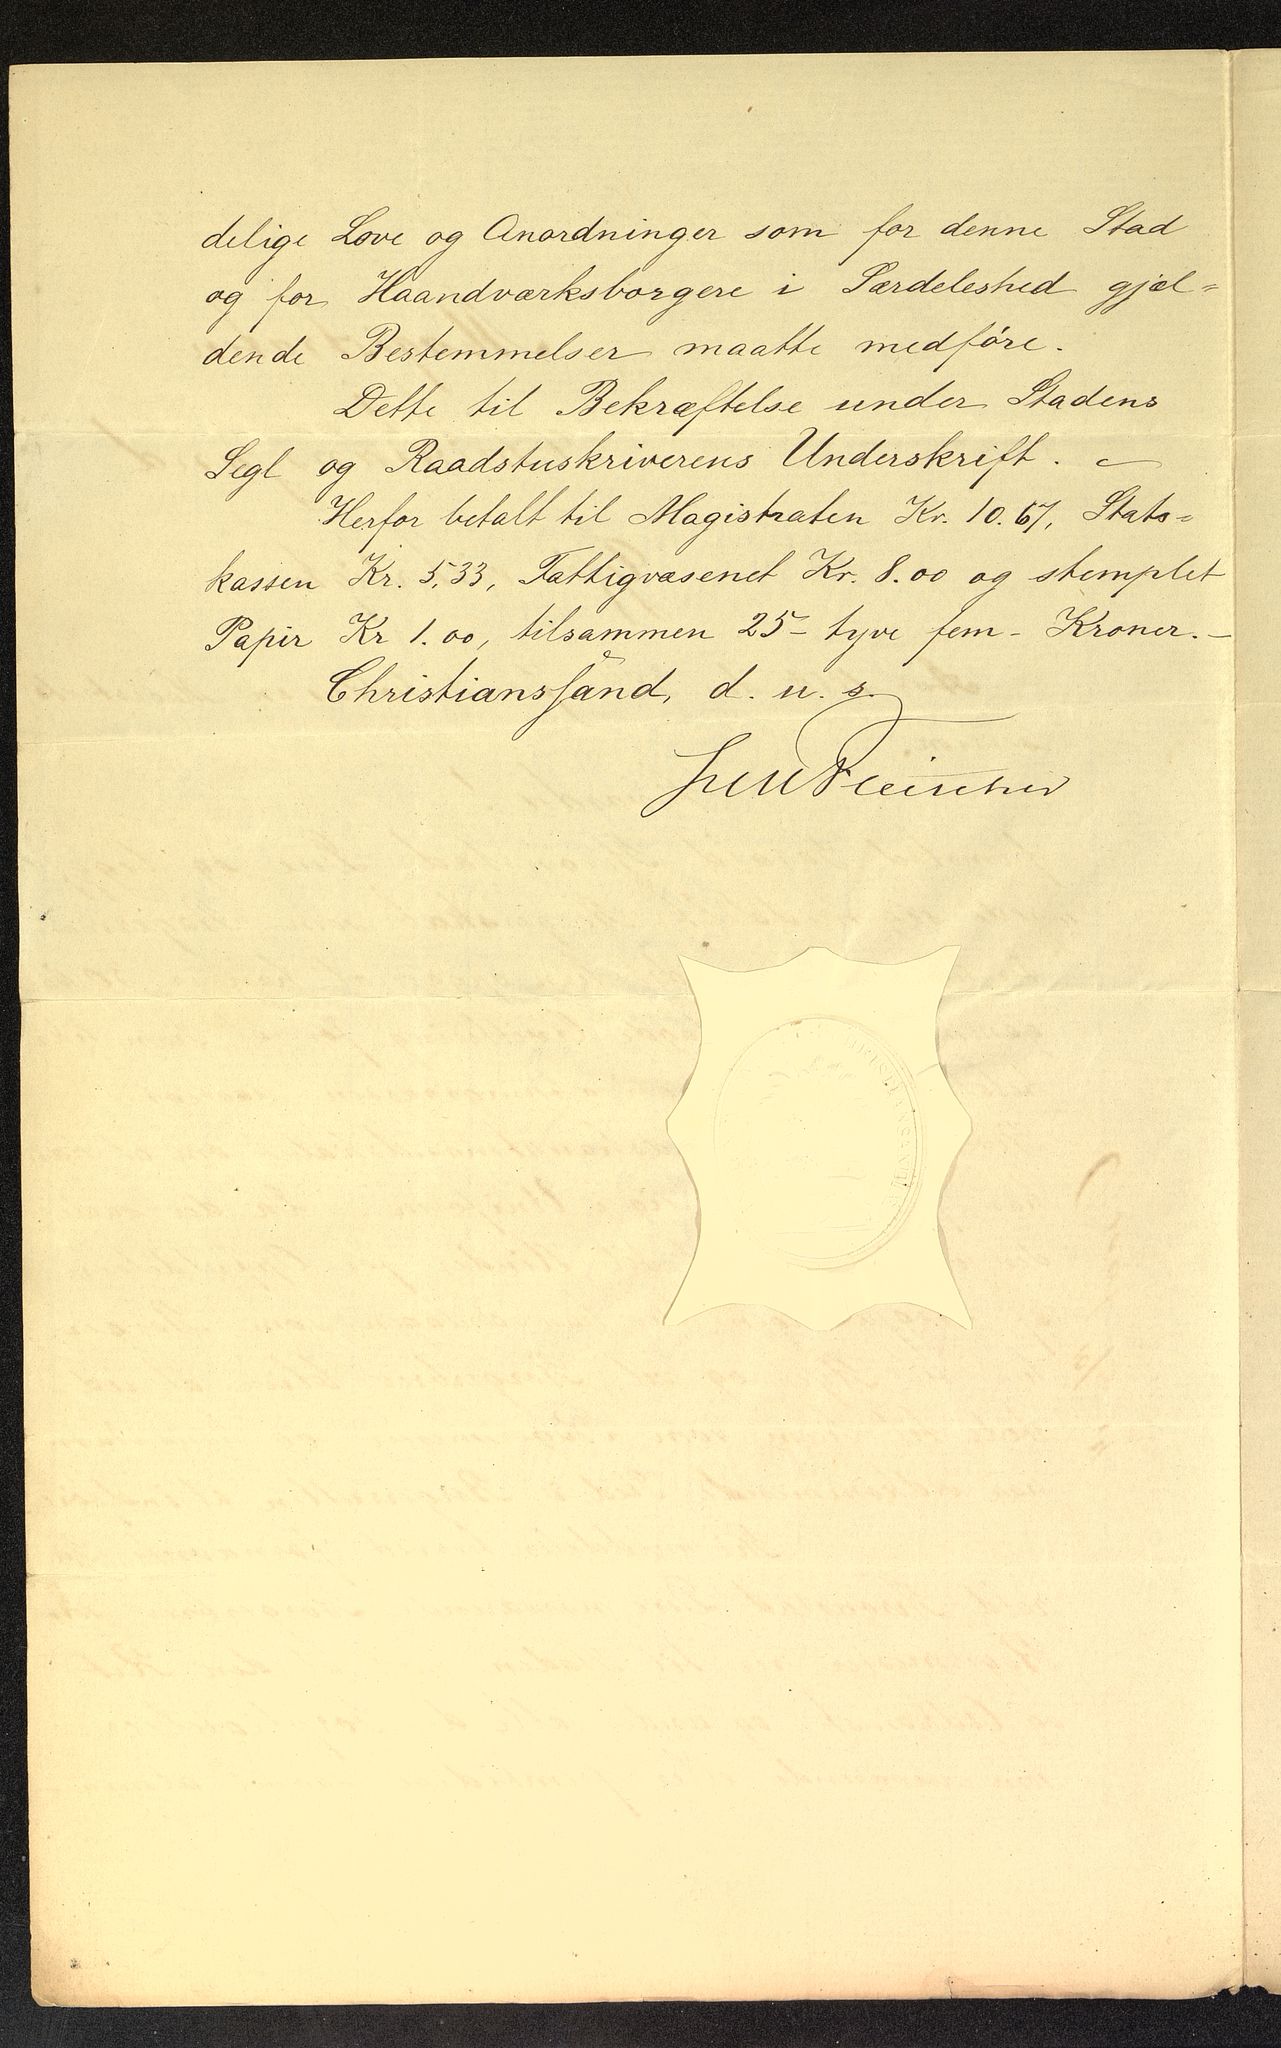 delige Love og Anordninger som for denne Stad
og for Haandværksborgere i Særdeleshed gjæl=
dende Bestemmelser maatte medføre.
Dette til Bekræftelse under Stadens
Segl og Raadstuskriverens Underskrift. —
Herfor betalt til Magistraten Kr. 10.67, Stats=
kassen Kr. 5,33, Fattigvæsenet Kr. 8.00 og stemplet
Papir Kr 1.00, tilsammen 25 – tyve fem – Kroner. –
Christianssand, d. u. s.
Fleischer